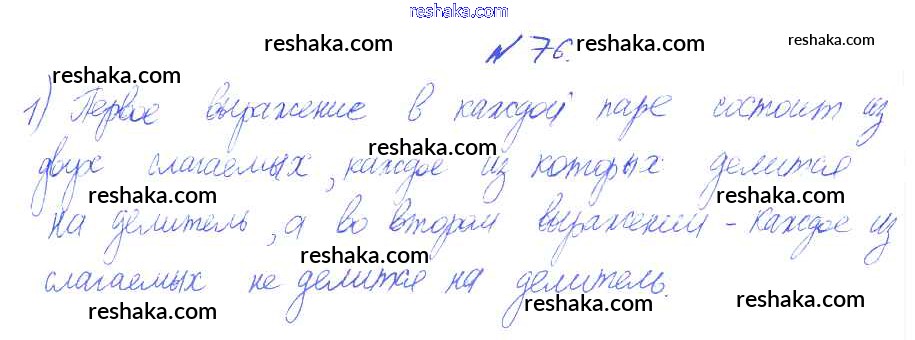 reshaka.com
reshaka.com reshaka.com reshaka.com
№ 76.
reshaka.com
1) Первое выражение в каждой паре состоит из
reshaka.com
двух слагаемых, каждое из которых делится
reshaka.com reshaka.com
на делитель, а во втором выражении - каждое из
reshaka.com
слагаемых не делится на делитель.
reshaka.com reshaka.com reshaka.com